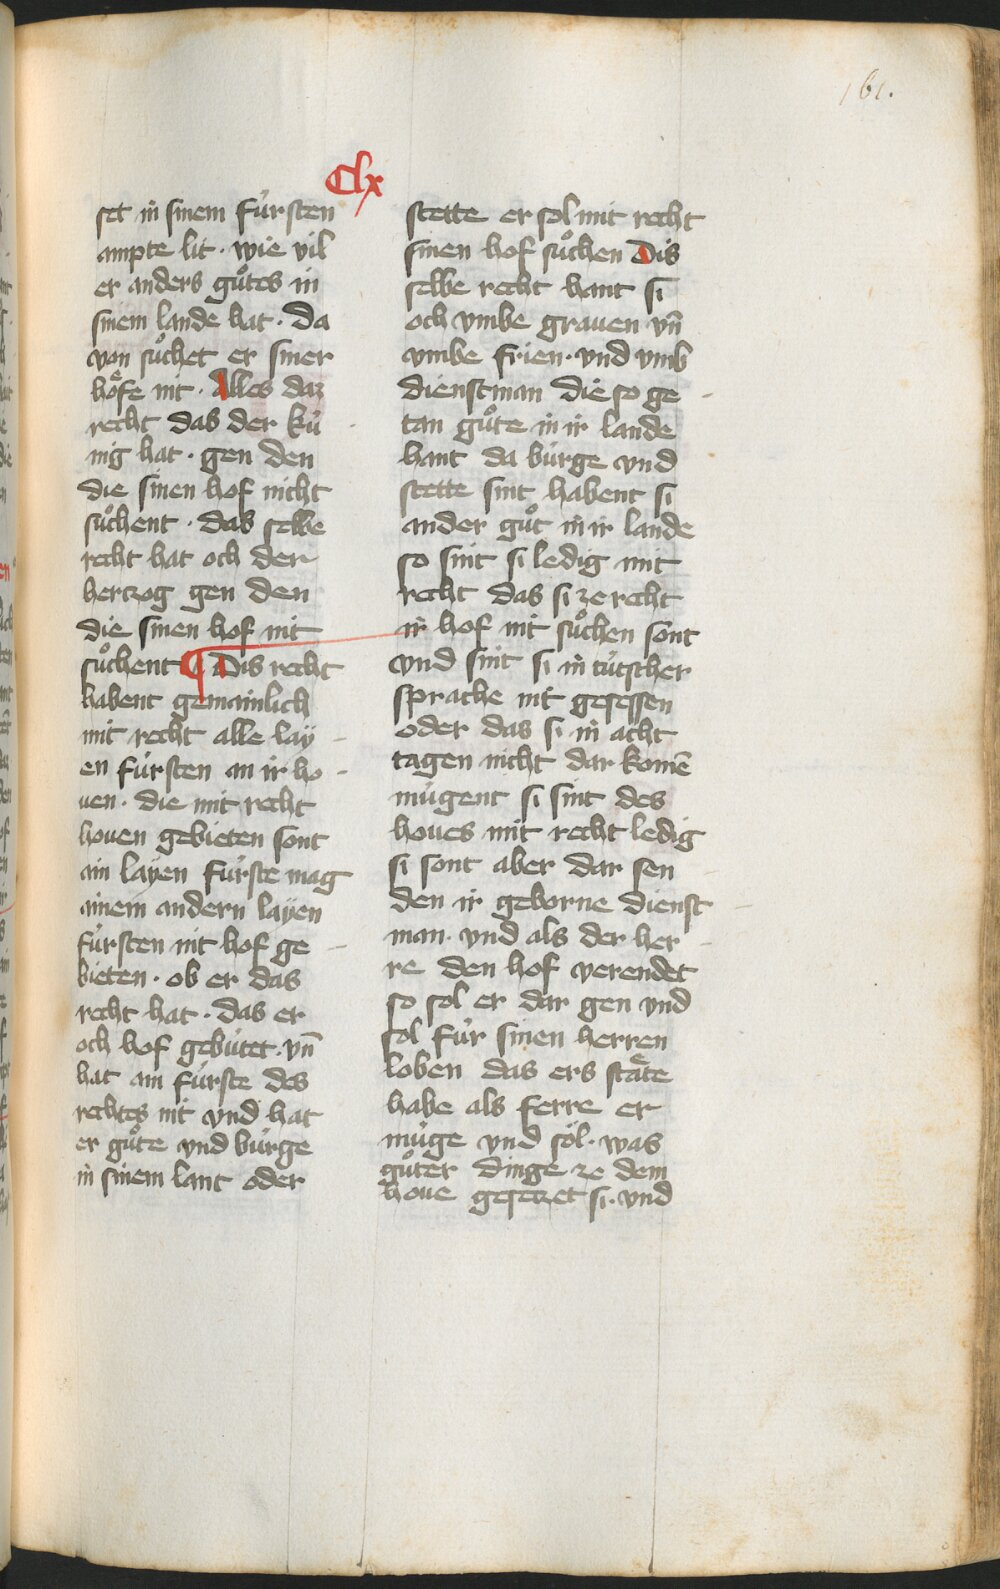 161.
Clx
set in sinem fúrsten
ampte lit · wie vil
er anders gůtes in
sinem lande hat · da
von sůchet er siner
hoͤfe nit · Alles daz
recht das der kú
nig hat · gen den
die sinen hof nicht
sůchent · das selbe
recht hat och der
hertzog gen den
die sinen hof nit
sůchent ¶ Dis recht
habent gemainlich
mit recht alle lay
en fúrsten an ir ho
uen · die mit recht
houen gebieten sont
ain layen fúrste mag
ainem andern layen
fúrsten nit hof ge
bieten · ob er das
recht hat · das er
och hof gebútet · vn̄
hat ain fúrste des
rechtes nit vnd hat
er gůte vnd búrge
in sinem lant oder
stette er sol mit recht
sinen hof sůchen Dis
selbe recht hant si
och vmbe grauen vn̄
vmbe frien · vnd vmb
dienstman die so ge
tan gůte in ir lande
hant da búrge vnd
stette sint habent si
ander gůt in ir lande
so sint si ledig mit
recht das si ze recht
ir hof nit sůchen sont
vnd sint si in tútscher
sprache nit gesessen
oder das si in acht
tagen nicht dar komē
múgent si sint des
houes mit recht ledig
si sont aber dar sen
den ir geborne dienst
man · vnd als der her
re den hof verendet
so sol er dar gen vnd
sol fúr sinen herren
loben das ers staͤte
habe als ferre er
múge vnd söl · was
gůter dinge ze dem
houe gesetzet si · vnd